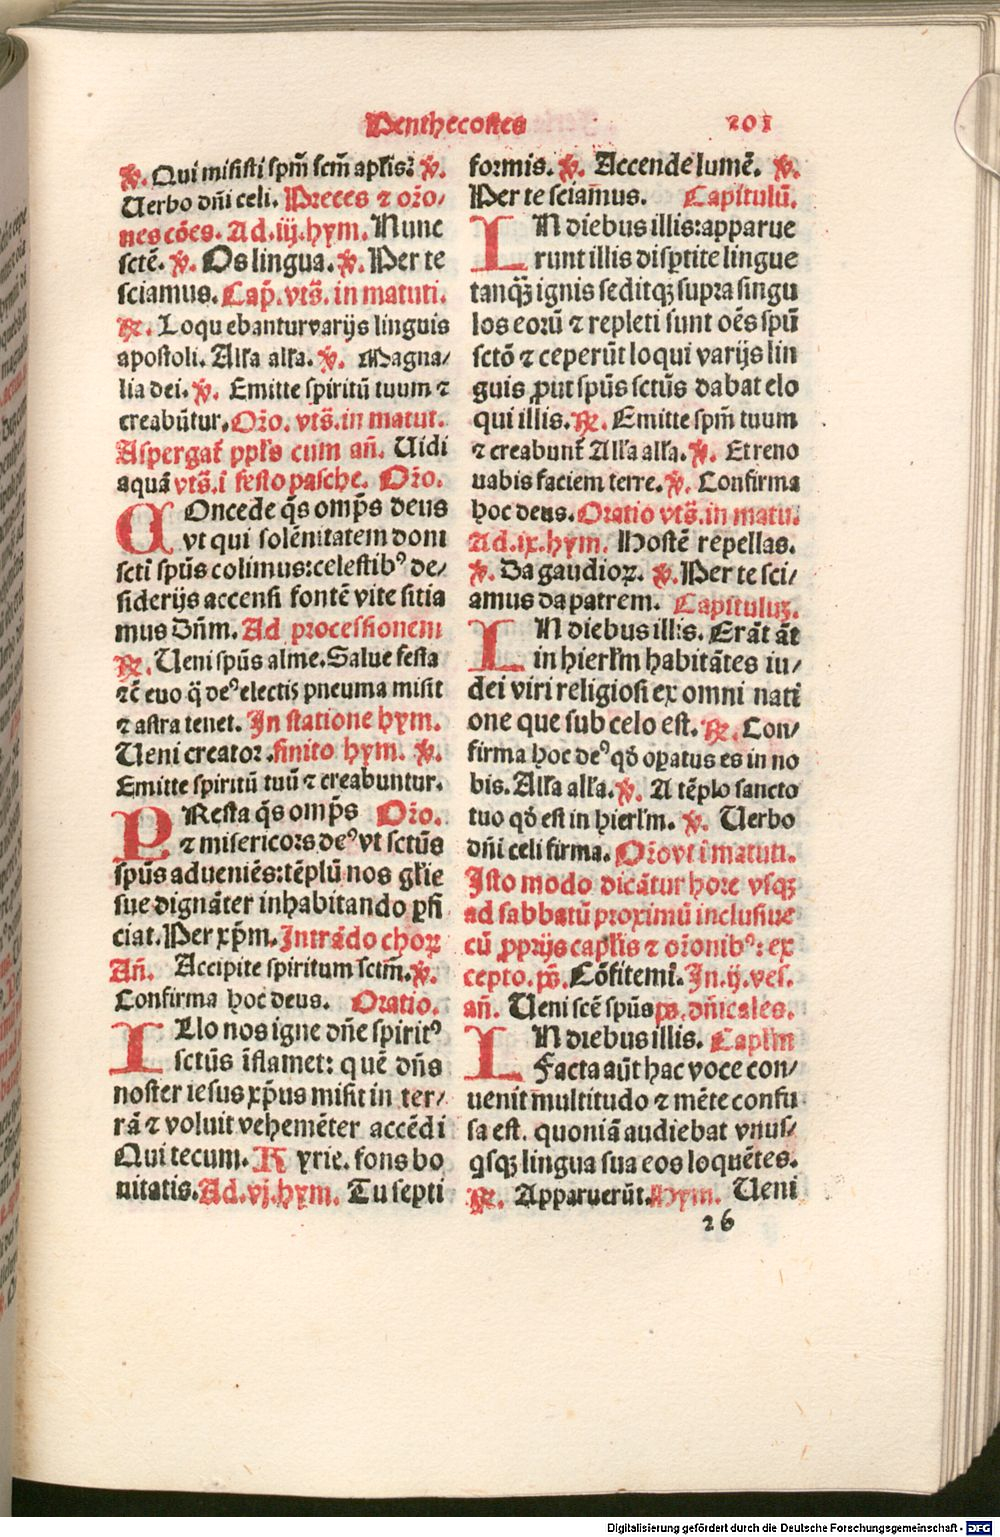 Penthecostes 201
℣. Qui misisti spm̄ scm̄ apl̄is? ℣.
Uerbo dn̄i celi. Preces ⁊ orō-
nes cōes. Ad.iij.hym. Nunc
sctē. ℣. Os lingua. ℣. Per te
sciamus. Cap̄. vts̄. in matuti.
℟. Loquebantur varijs linguis
apostoli. All'a all'a. ℣. Magna-
lia dei. ℣. Emitte spiritū tuum ⁊
creabūtur. Orō. vts̄. in matut.
Aspergat̄ ppl's cum an̄. Uidi
aquā vts̄. ī festo pasche. Orō.
COncede qs̄ omp̄s deus
vt qui solēnitatem doni
scti spūs colimus: celestibꝰ de-
siderijs accensi fontē vite sitia
mus Dn̄m. Ad processionem
℟. Ueni spūs alme. Salue festa
⁊c̄ euo q̄ deꝰ electis pneuma misit
⁊ astra tenet. In statione hym.
Ueni creator. finito hym. ℣.
Emitte spiritū tuū ⁊ creabuntur.
PResta qs̄ omp̄s Orō.
⁊ misericors deꝰ vt sctūs
spūs adueniēs: tēplū nos gl'ie
sue dignāter inhabitando ꝑfi
ciat. Per xp̄m. Intrādo choꝝ
An̄. Accipite spiritum sctm̄. ℣.
Confirma hoc deus. Oratio.
ILlo nos igne dn̄e spiritꝰ
sctūs īflamet: quē dn̄s
noster iesus xp̄us misit in ter-
rā ⁊ voluit vehemēter accēdi
Qui tecum. Kyrie. fons bo
nitatis. Ad.vj.hym. Tu septi
formis. ℣. Accende lumē. ℣.
Per te sciam̄us. Capitulū.
IN diebus illis: apparue
runt illis disꝑtite lingue
tanqꝫ ignis seditqꝫ supra singu
los eorū ⁊ repleti sunt oēs spū
sctō ⁊ ceperūt loqui varijs lin
guis ꝓut spūs sctūs dabat elo
qui illis. ℟. Emitte spm̄ tuum
⁊ creabunt̄ All'a all'a. ℣. Et reno
uabis faciem terre. ℣. Confirma
hoc deus. Oratio vts̄. in matu.
Ad.ix.hym. Hostē repellas.
℣. Da gaudioꝝ. ℣. Per te sci-
amus da patrem. Capituluꝫ.
IN diebus illis. Erāt āt
in hierl'm habitātes iu-
dei viri religiosi ex omni nati
one que sub celo est. ℟. Con-
firma hoc deꝰ qd̄ oꝑatus es in no
bis. All'a all'a. ℣. A tēplo sancto
tuo qd̄ est in hierl'm. ℣. Uerbo
dn̄i celi firma. Orō vt ī matuti.
Isto modo dicātur hore vsqꝫ
ad sabbatū proximū inclusiue
cū ꝓprijs capl'is ⁊ orōnibꝰ: ex
cepto. ps̄. Cōfitemī. In.ij.ves.
an̄. Ueni scē spūs ps̄. dn̄icales.
IN diebus illis. Capl'm
Facta aūt hac voce con-
uenit multitudo ⁊ mēte confu
sa est. quoniā audiebat vnus-
qsqꝫ lingua sua eos loquētes.
℟. Apparuerūt. Hym. Ueni
26
Digitalisierung gefördert durch die Deutsche Forschungsgemeinschaft - DFG